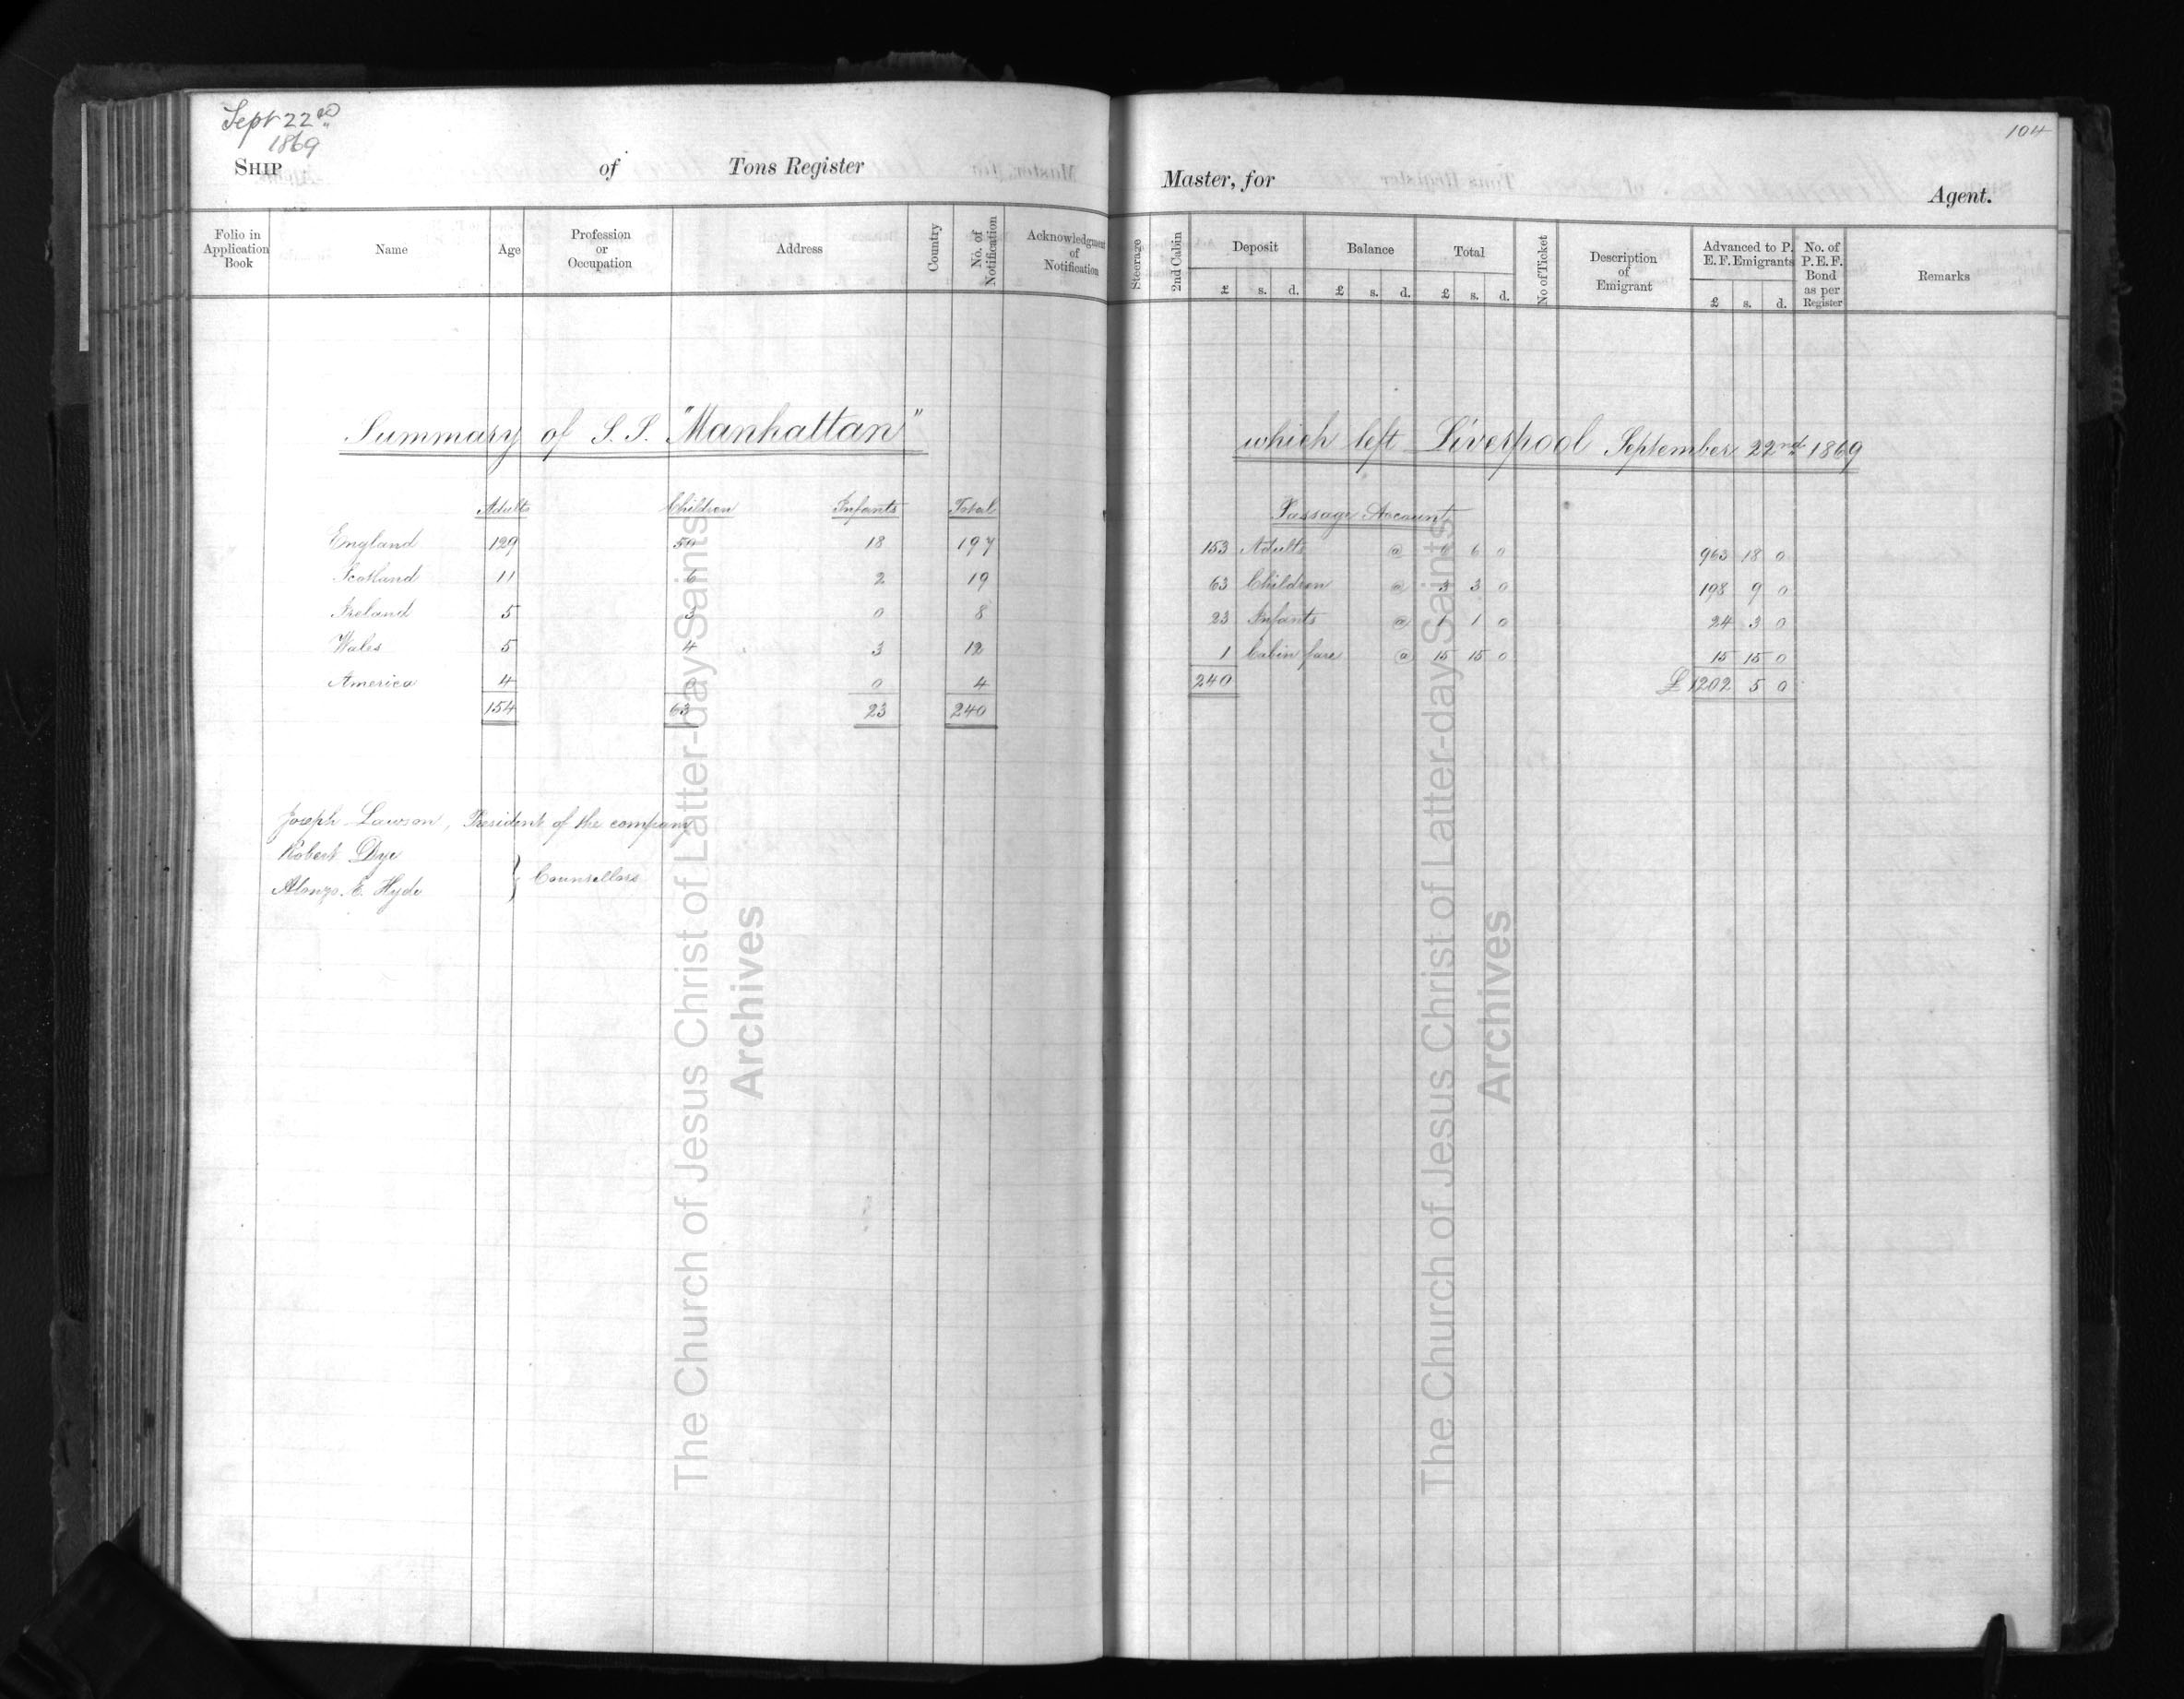 Sept 22nd
1869
104
SHIP of Tons Register Master, for Agent.
Folio in Application Book Name Age Profession or Occupation Address Country No. of Notification Acknowledgment of Notification Steerage 2nd Cabin Deposit Balance Total No of Ticket Description of Emigrant Advanced to P. E. F. Emigrants No. of P. E. F. Bond as per Register Remarks
£ s. d. £ s. d. £ s. d. £ s. d.
Summary of S. S. "Manhattan" which left Liverpool September 22nd 1869
Adults Children Infants Total
England 129 50 18 197
Scotland 11 6 2 19
Ireland 5 3 0 8
Wales 5 4 3 12
America 4 0 0 4
154 63 23 240
Joseph Lawson, President of the company
Robert Dye
Alonzo. E. Hyde } Counsellors
Passage Account
153 Adults @ 6 6 0 963 18 0
63 Children @ 3 3 0 198 9 0
23 Infants @ 1 1 0 24 3 0
1 Cabin fare @ 15 15 0 15 15 0
240 £1202 5 0
The Church of Jesus Christ of Latter-day Saints
Archives
The Church of Jesus Christ of Latter-day Saints
Archives